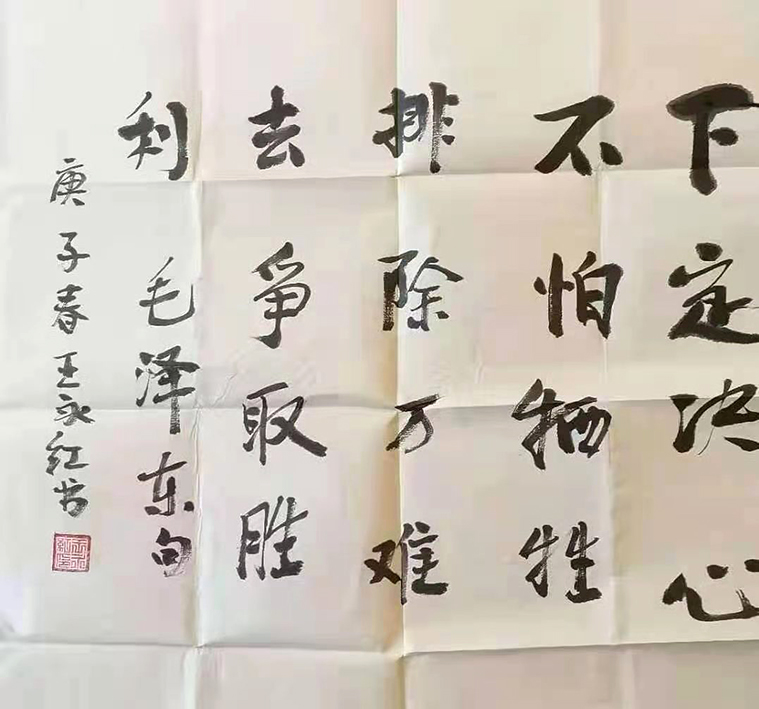 下定决心
不怕牺牲
排除万难
去争取胜
利 毛泽东句
庚子春王永红书